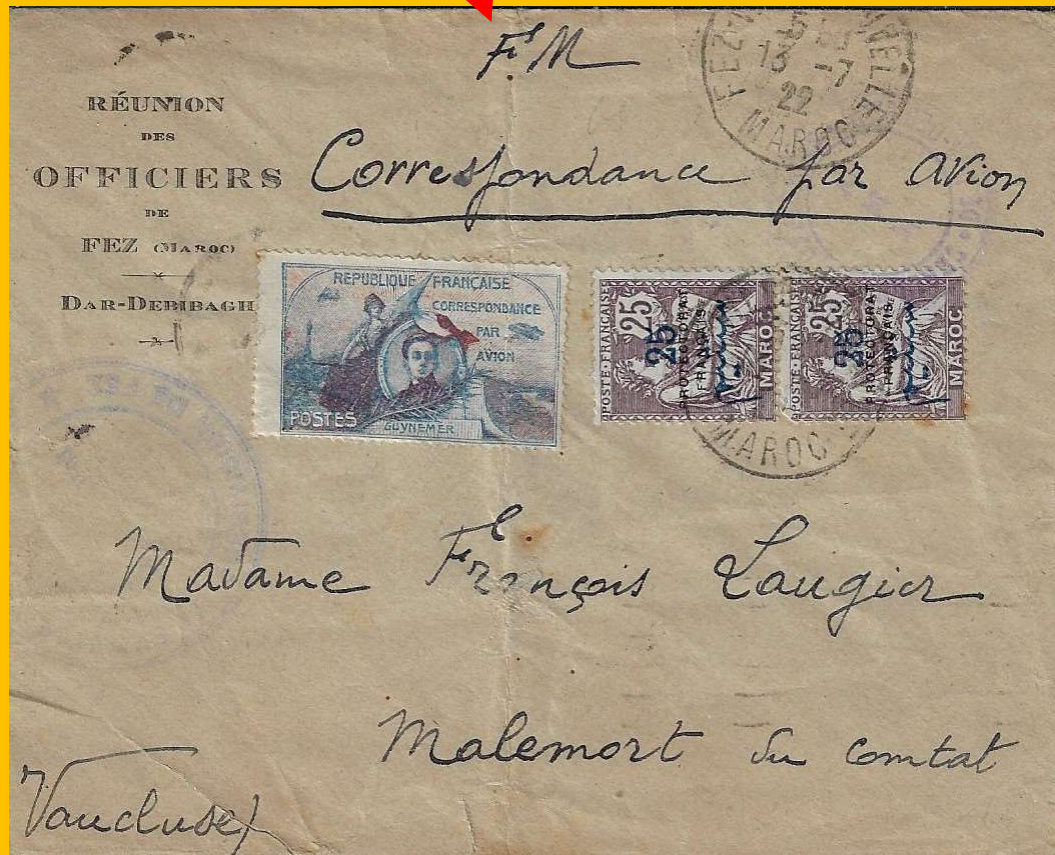 F.M
RÉUNION
DES
OFFICIERS
DE
FEZ (MAROC)
DAR-DEBIBAGH
Correspondance par avion
FEZ VELLE
13 -7
22
MAROC
REPUBLIQUE FRANÇAISE
CORRESPONDANCE
PAR
AVION
POSTES
GUYNEMER
POSTE FRANÇAISE
25
25
PROTECTORAT
FRANÇAIS
MAROC
POSTE FRANÇAISE
25
25
PROTECTORAT
FRANÇAIS
MAROC
MAROC
Madame François Laugier
Malemort du comtat
Vaucluse